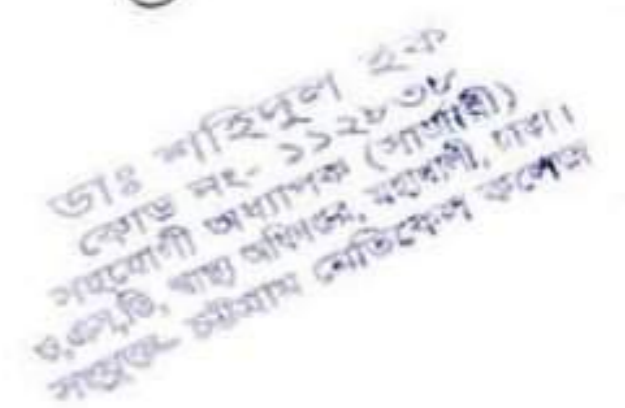 ডাঃ শহিদুল হক
কোড নং- ১১২৮৩৮
সহযোগী অধ্যাপক (সার্জারী)
ও,এস,ডি, স্বাস্থ্য অধিদপ্তর, মহাখালী, ঢাকা।
সংযুক্ত- মেডিকেল কলেজ